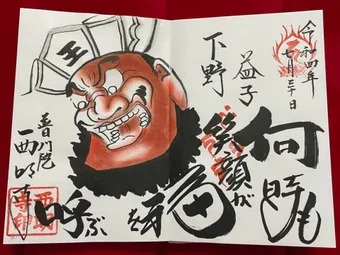 令和四年
七月三十日
益子
下野
何時も
笑顔が
福を
呼ぶ
王
普門院
西明寺
西明寺印